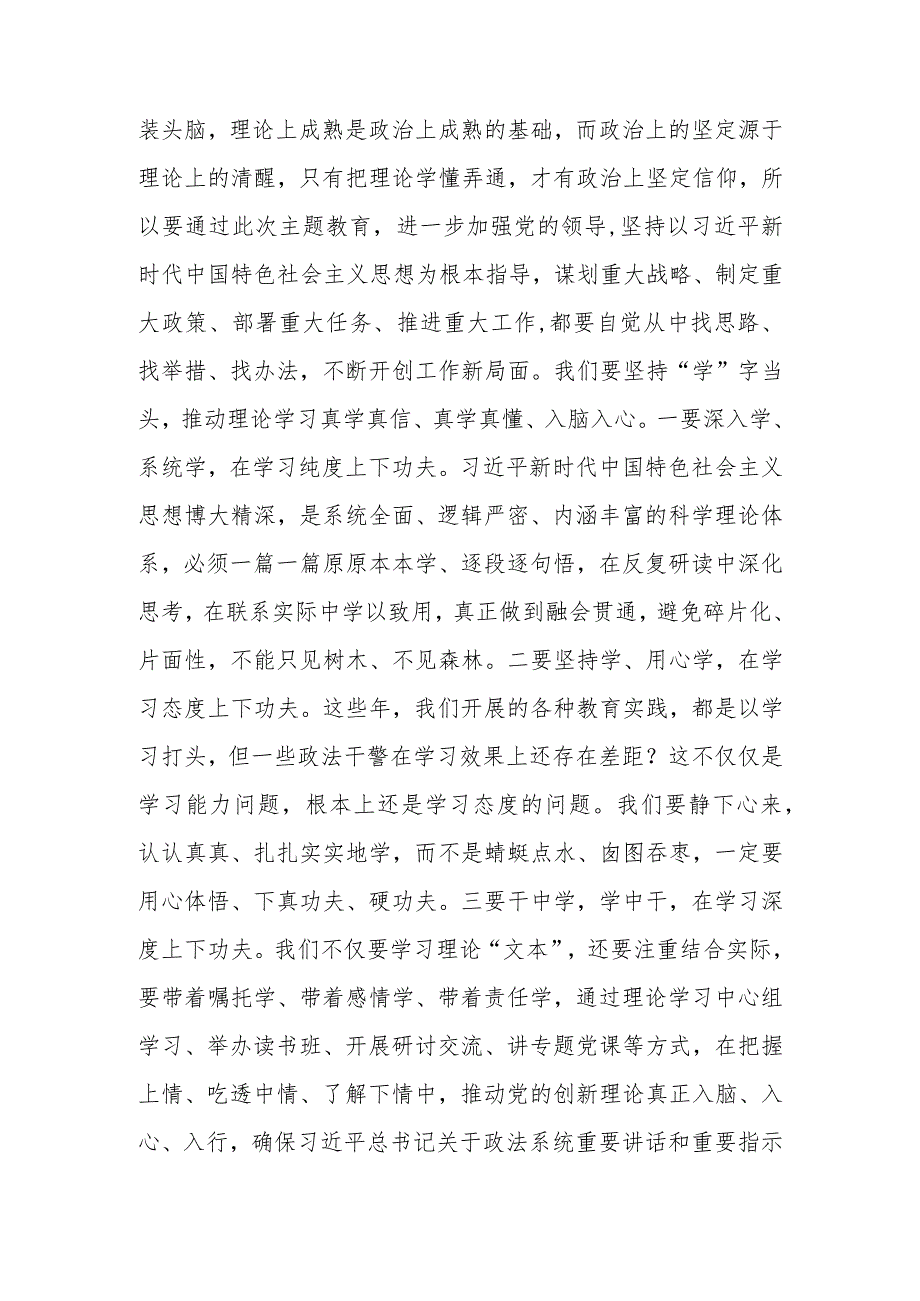 装头脑，理论上成熟是政治上成熟的基础，而政治上的坚定源于
理论上的清醒，只有把理论学懂弄通，才有政治上坚定信仰，所
以要通过此次主题教育，进一步加强党的领导,坚持以习近平新
时代中国特色社会主义思想为根本指导，谋划重大战略、制定重
大政策、部署重大任务、推进重大工作,都要自觉从中找思路、
找举措、找办法，不断开创工作新局面。我们要坚持“学”字当
头，推动理论学习真学真信、真学真懂、入脑入心。一要深入学、
系统学，在学习纯度上下功夫。习近平新时代中国特色社会主义
思想博大精深，是系统全面、逻辑严密、内涵丰富的科学理论体
系，必须一篇一篇原原本本学、逐段逐句悟，在反复研读中深化
思考，在联系实际中学以致用，真正做到融会贯通，避免碎片化、
片面性，不能只见树木、不见森林。二要坚持学、用心学，在学
习态度上下功夫。这些年，我们开展的各种教育实践，都是以学
习打头，但一些政法干警在学习效果上还存在差距？这不仅仅是
学习能力问题，根本上还是学习态度的问题。我们要静下心来，
认认真真、扎扎实实地学，而不是蜻蜓点水、囱图吞枣，一定要
用心体悟、下真功夫、硬功夫。三要干中学，学中干，在学习深
度上下功夫。我们不仅要学习理论“文本”，还要注重结合实际，
要带着嘱托学、带着感情学、带着责任学，通过理论学习中心组
学习、举办读书班、开展研讨交流、讲专题党课等方式，在把握
上情、吃透中情、了解下情中，推动党的创新理论真正入脑、入
心、入行，确保习近平总书记关于政法系统重要讲话和重要指示